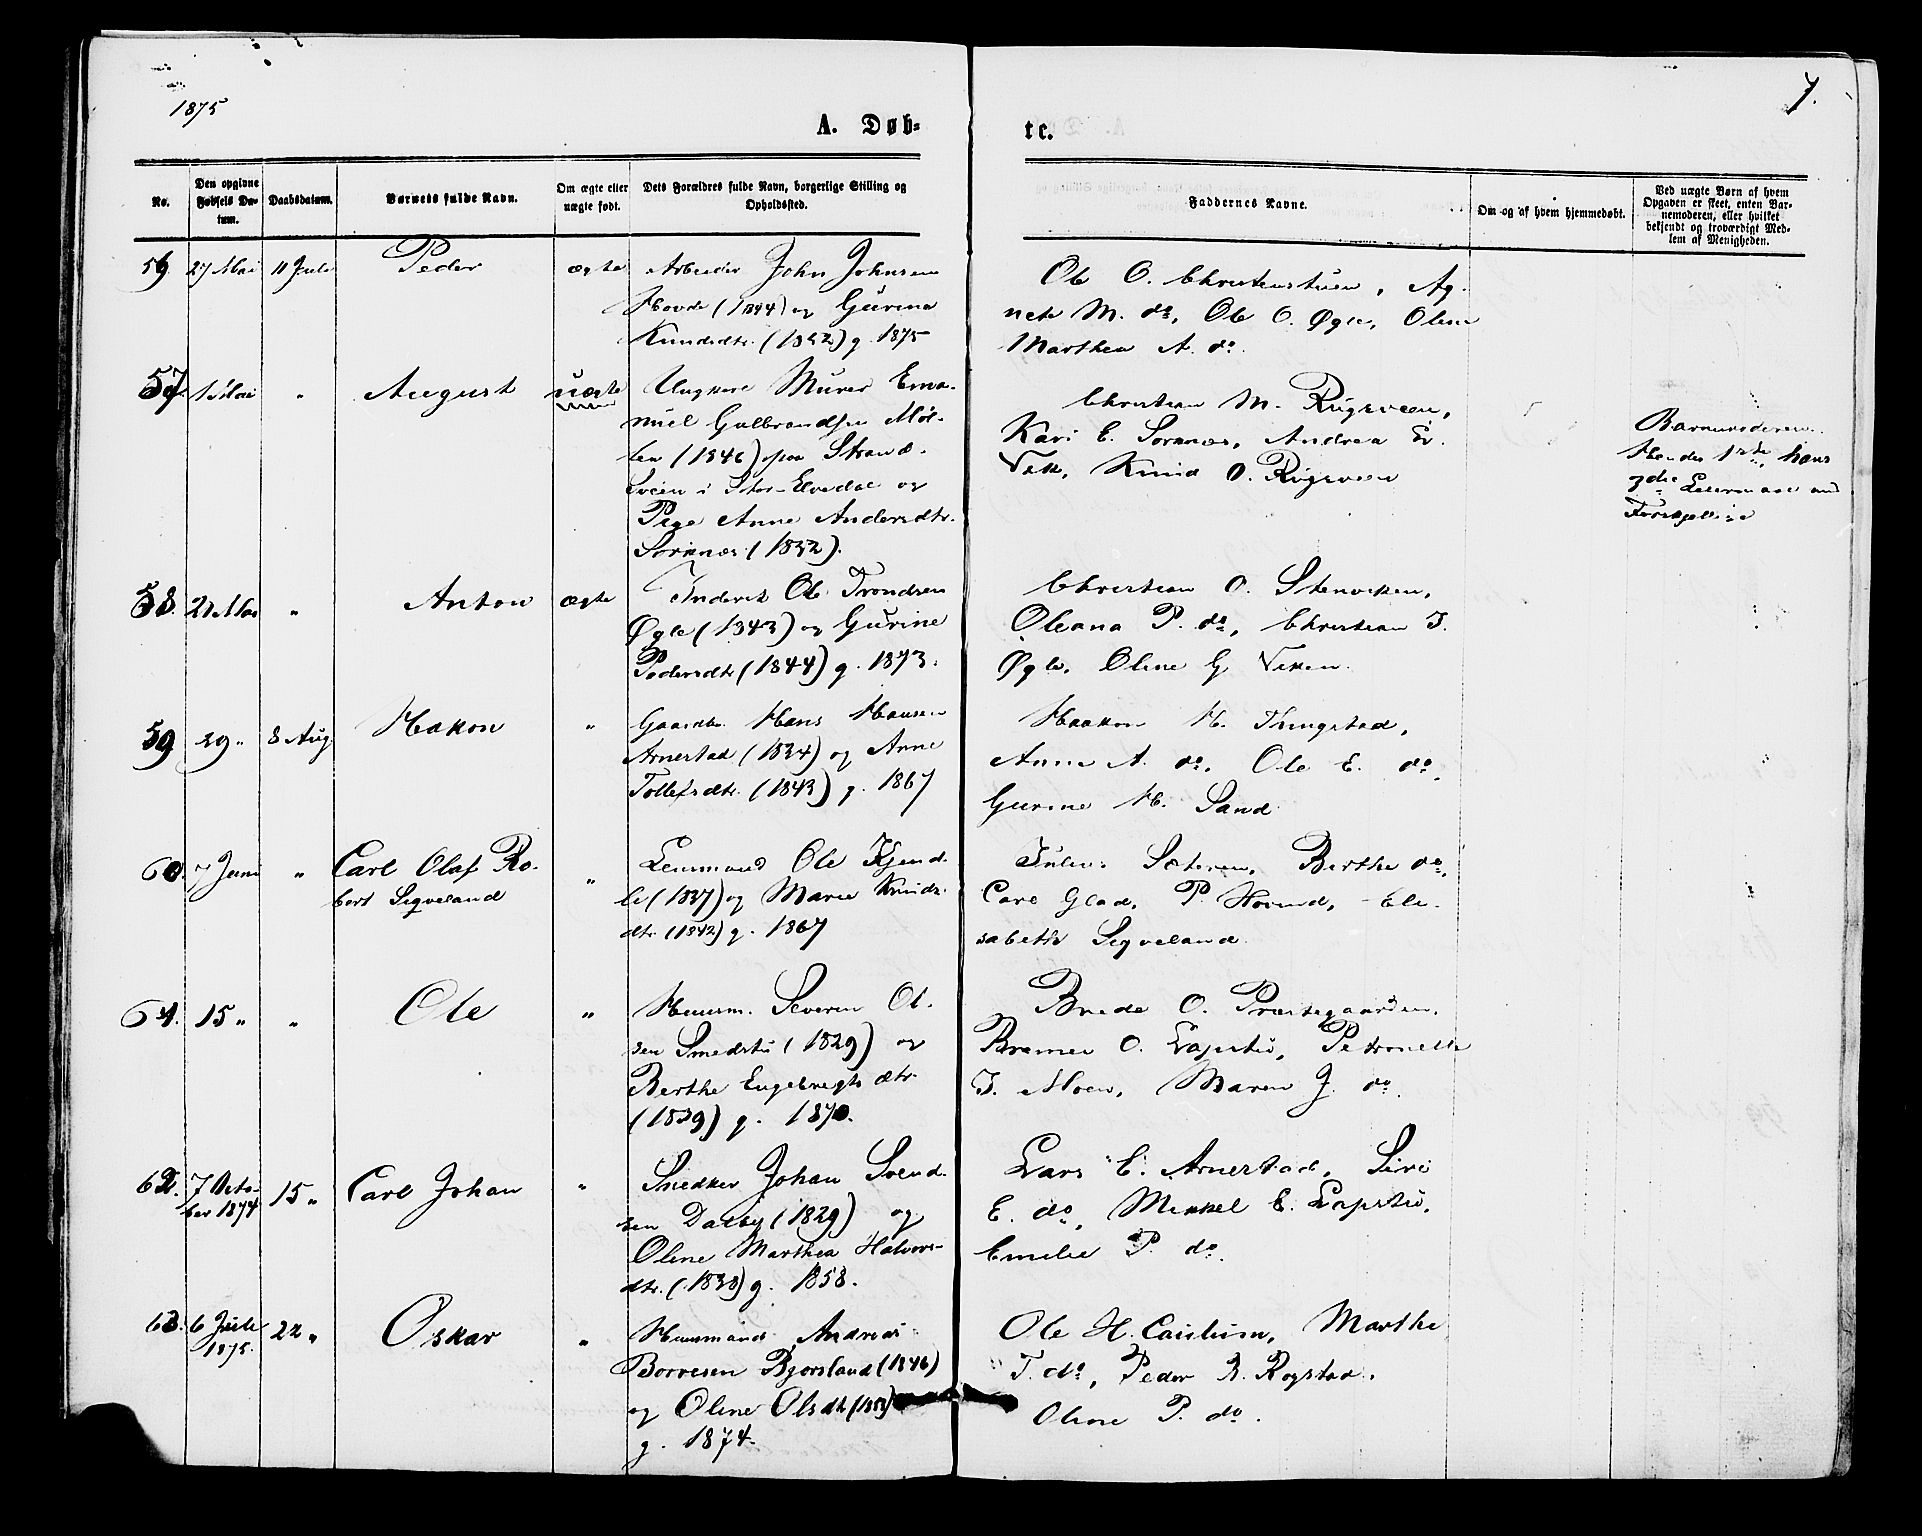 1875
7.
A. Døb-
te.
No.
Den opgivne Fødsels Datum.
Daabsdatum.
Barnets fulde Navn.
Om ægte eller uægte født.
Dets Forældres fulde Navn, borgerlige Stilling og Opholdssted.
Faddernes Navne.
Om og af hvem hjemmedøbt.
Ved uægte Børn af hvem Opgaven er skeet, enten Barnemoderen, eller hvilket bekjendt og troværdigt Medlem af Menigheden.
56 27 Mai 11 Juli Peder ægte
Arbeider John Johnsen
Hovde (1844) og Gurina
Knudsdtr. (1852) g. 1875
Ole O. Christenstuen, Ag-
nete M. do, Ole O. Øgle, Oline
Marthea A. do.
57 1 Mai " August uægte
Ungkarl Murer Ema-
nuel Gulbrandsen Mol-
ien (1846) paa Strand-
sveen i Stor-Elvedal og
Pige Anne Andersdtr.
Sorknes (1852).
Christian M. Rugsveen,
Kari E. Sorknes, Andrea E.
Vik, Knud O. Rugsveen
Barnemoderen.
Hendes 1ste, hans
3die Leiermaal med
Forskjellige
58. 21 Mai " Anton ægte
Inderst Ole Trondsen
Øgle (1843) og Gurine
Pedersdtr. (1844) g. 1873.
Christian O. Stenviken,
Oleana P. do, Christian T.
Øgle, Oline G. Viken.
59 29 " 8 Aug. Hakon "
Gaardbr. Hans Hansen
Arnestad (1834) og Anne
Tollefsdtr. (1843) g. 1867
Haakon H. Tringstad,
Anne A. do, Ole E. do,
Gurine H. Sand
60. 7 Juni " Carl Olaf Ro-
bert Sigveland "
Lensmand Ole Kjend-
lie (1837) og Marie Knuds-
dtr. (1842) g. 1867
Julius Sæteren, Berthe do,
Carl Glad, P. Hovind, Eli-
sabeth Sigveland.
61. 15 " " Ole "
Huusm. Severin Ol-
sen Smedstu (1829) og
Berthe Engebregtsdtr.
(1839) g. 1870.
Brede O. Præstegaarden,
Bremer O. Løpstu, Petronelle
J. Moen, Maren J. do.
62. 7 Octo-
ber 1874 15 " Carl Johan "
Snedker Johan Svend-
sen Dalby (1829) og
Oline Marthea Halvors-
dtr. (1838) g. 1858.
Lars E. Arnestad, Siri
E. do, Mikkel E. Løpstu,
Emilie P. do.
63. 6 Juli
1875. 22 " Oskar "
Huusmand Andreas
Borresen Bjorsland (1846)
og Oline Olsdtr (1853)
g. 1874.
Ole H. Caislum, Marthe
T. do, Peder R. Rogstad,
Oline P. do.